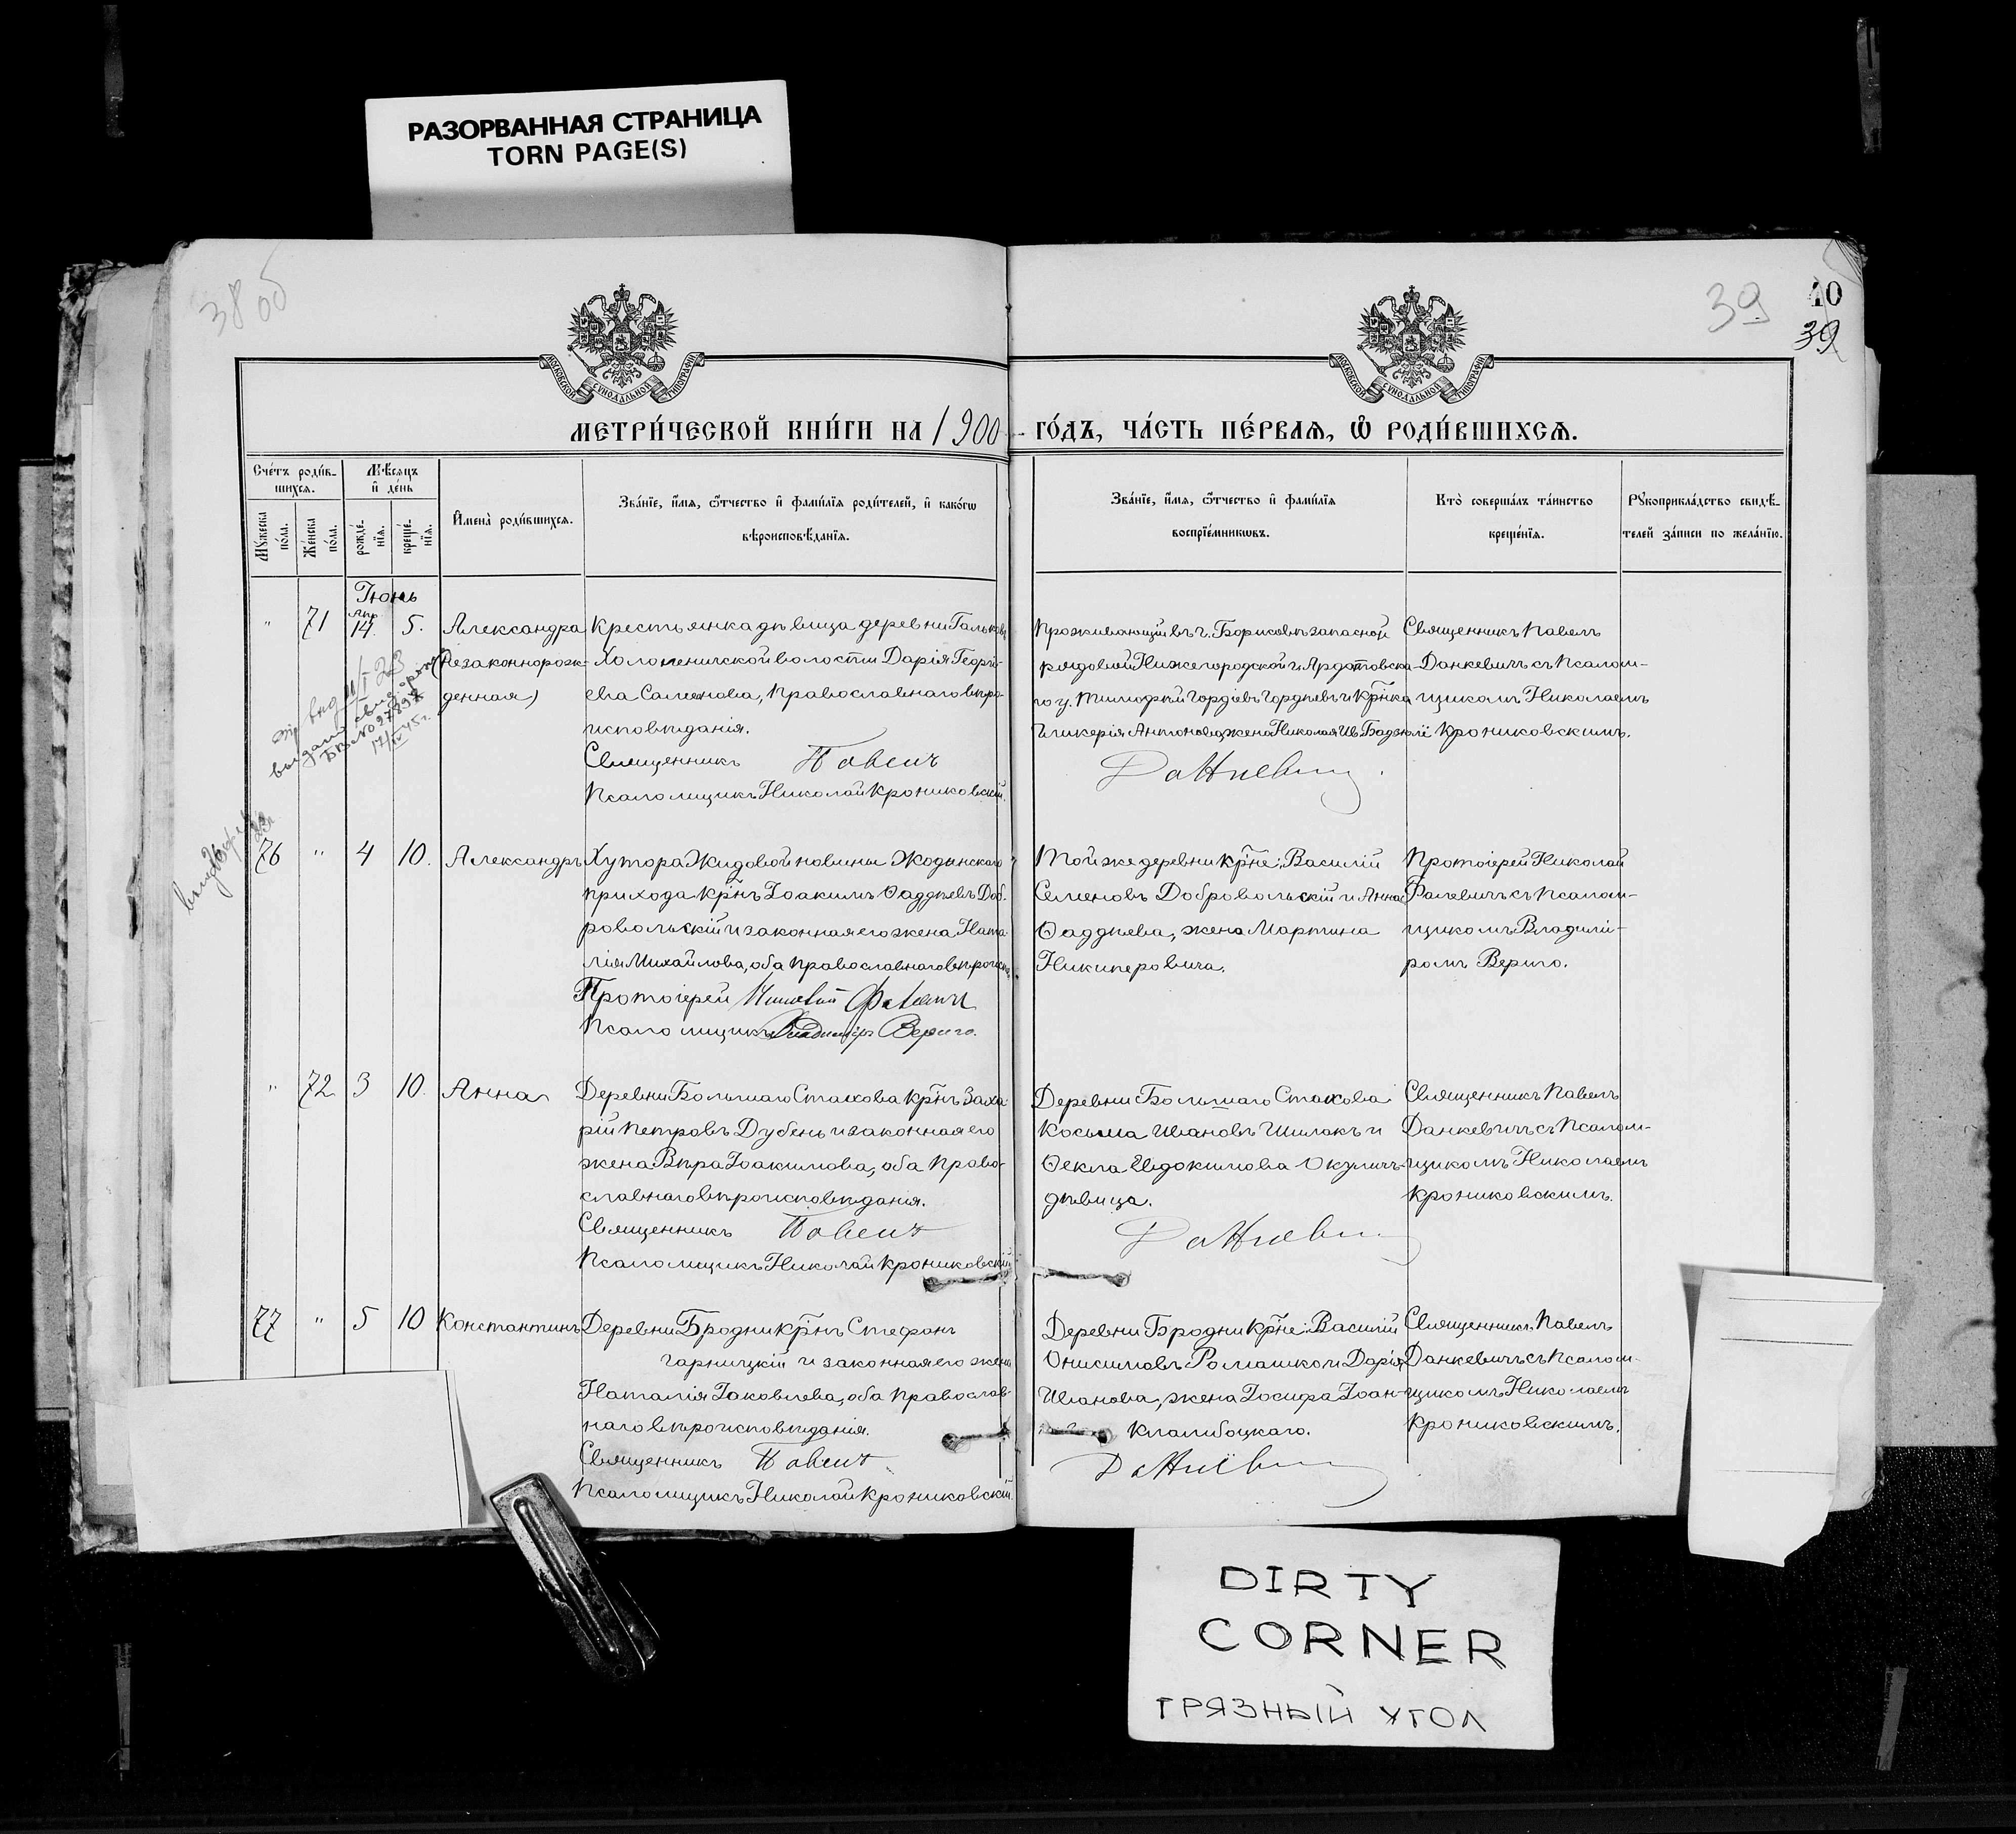 РАЗОРВАННАЯ СТРАНИЦА
TORN PAGE(S)
38 об
39
10
39
МОСКОВСКОЙ СѴНОДАЛЬНОЙ ТИПОГРАФІИ
МОСКОВСКОЙ СѴНОДАЛЬНОЙ ТИПОГРАФІИ
МЕТРИ́ЧЕСКОЙ КНИ́ГИ НА 1900 ГО́ДЪ, ЧА́СТЬ ПЕ́РВАЯ, Ѡ РОДИ́ВШИХСЯ.
Сче́тъ роди́в-
шихся.
Мѣ́сяцъ
и҆ де́нь
Му́жеска по́ла.
Же́нска по́ла.
рожде́-нїя.
креще́-нїя.
И҆мена̀ роди́вшихся.
Зва́нїе, и҆́мя, ѻ҆́тчество и҆ фами́лїя роди́телей, и҆ како́гѡ
вѣроисповѣ́данїя.
Зва́нїе, и҆́мя, ѻ҆́тчество и҆ фами́лїя
воспрїе́мникѡвъ.
Кто̀ соверша́лъ та́инство
креще́нїя.
Рꙋкоприкла́дство свидѣ́-
телей за́писи по жела́нїю.
Іюнь
" 71 Апр. 14. 5. Александра
(Незаконнорож-
денная)
Крестьянка дѣвица деревни
Холопеничской волости Дарія Георгі-
ева Саменова, православнаго вѣро-
исповѣданія.
Священникъ Павелъ
Псаломщикъ Николай Крониковскій.
Проживающій въ г. Борисовѣ запасной
рядовой Нижегородской г. Ардатовска-
го у. Тимофей Гордіевъ Гордѣевъ и кр҃нка
Гликерія Антонова, жена Николая Ив.
Данкевичъ
Священникъ Павелъ
Данкевичъ съ Псалом-
щикомъ Николаемъ
Крониковскимъ.
76 " 4 10. Александръ
Хутора Жидовой новины Жодинскаго
прихода кр҃нъ Іоакимъ Ѳаддѣевъ Доб-
ровольскій и законная его жена Ната-
лія Михайлова, оба православнаго вѣроисп.
Протоіерей Николай Фалевичъ
Псаломщикъ Владиміръ Вериго.
Той же деревни кр҃не: Василій
Семеновъ Добровольскій и Анна
Ѳаддѣева, жена Мартина
Никиперовича.
Протоіерей Николай
Фалевичъ съ Псалом-
щикомъ Владимі-
ромъ Вериго.
" 72 3 10. Анна
Деревни Большаго Стахова кр҃нъ Заха-
рій Петровъ Дубень и законная его
жена Вѣра Іоакимова, оба право-
славнаго вѣроисповѣданія.
Священникъ Павелъ
Псаломщикъ Николай Крониковскій
Деревни Большаго Стахова
Косьма Ивановъ Шилакъ и
Ѳекла Евдокимова Окуличъ
дѣвица.
Данкевичъ
Священникъ Павелъ
Данкевичъ съ Псалом-
щикомъ Николаемъ
Крониковскимъ.
77 " 5 10 Константинъ
Деревни Бродни кр҃нъ Стефанъ
Гарницкій и законная его жена
Наталія Іаковлева, оба православ-
наго вѣроисповѣданія.
Священникъ Павелъ
Псаломщикъ Николай Крониковскій.
Деревни Бродни кр҃не: Василій
Онисимовъ Ромашко и Дарія
Иванова, жена Іосифа Іоан-
Клапибоцкаго.
Данкевичъ
Священникъ Павелъ
Данкевичъ съ Псалом-
щикомъ Николаемъ
Крониковскимъ.
DIRTY
CORNER
ГРЯЗНЫЙ УГОЛ